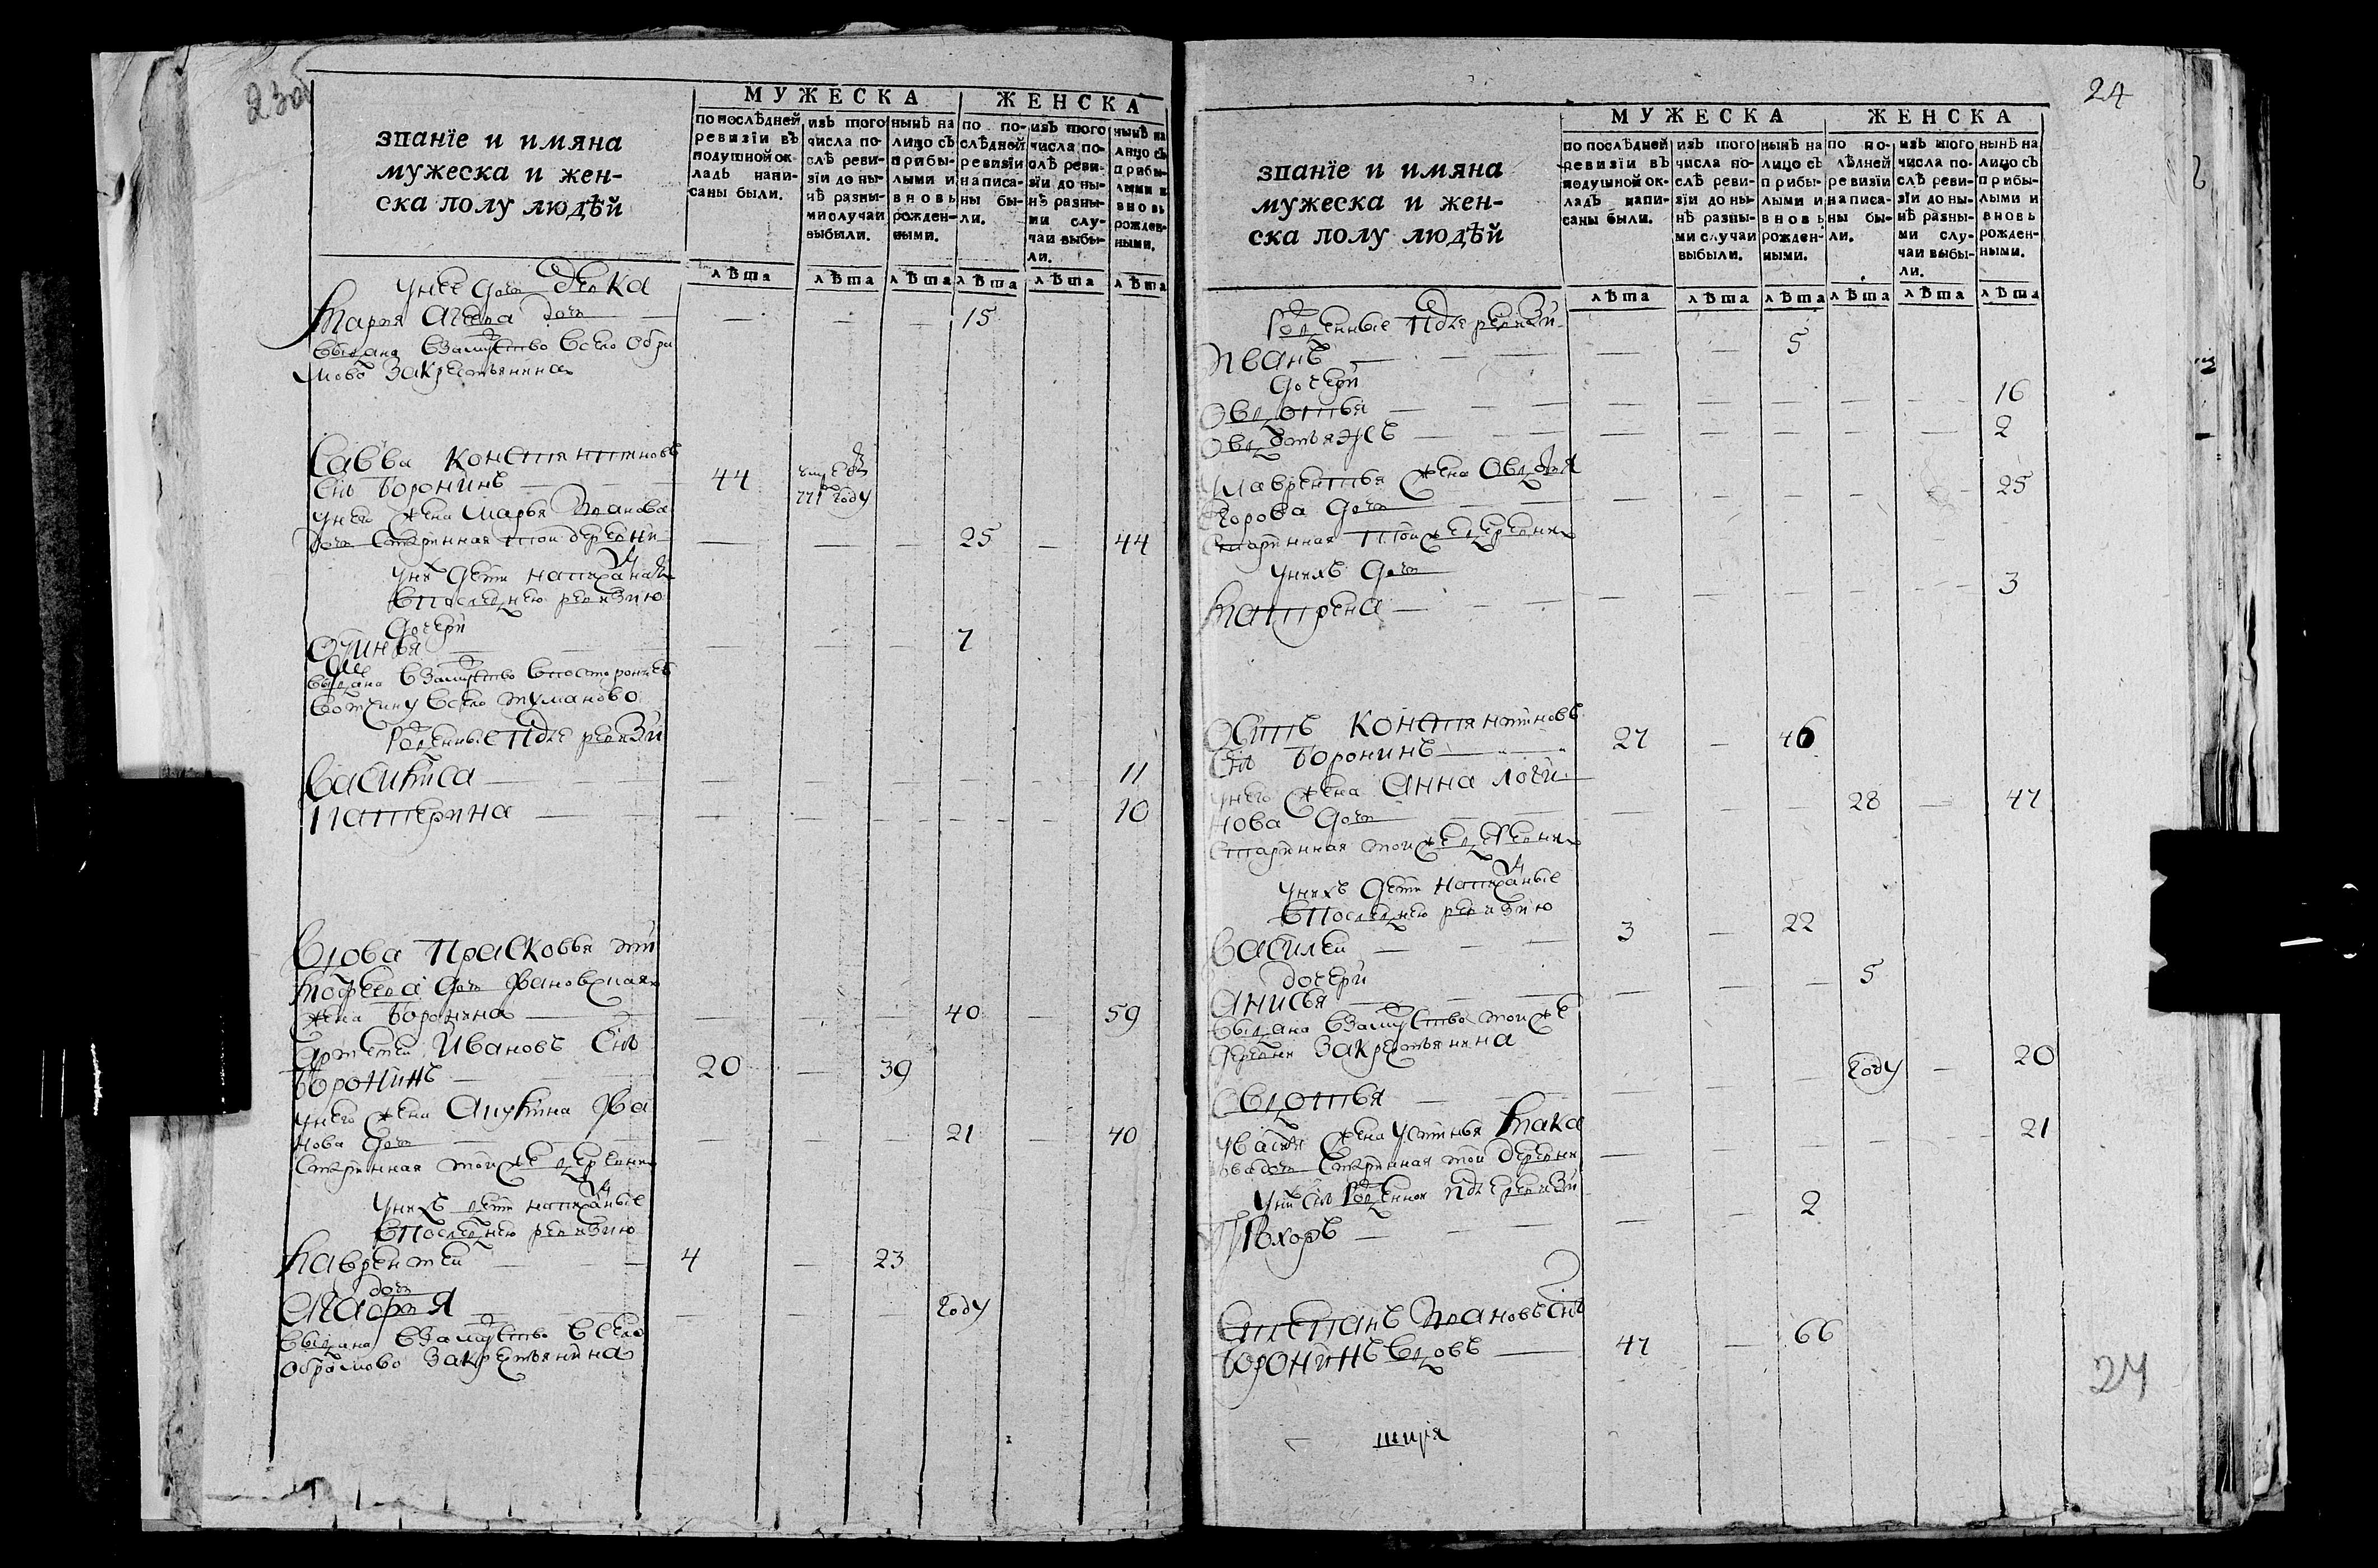 23об
МУЖЕСКА ЖЕНСКА
званїе и имяна
мужеска и жен-
ска полу людѣй
по послѣдней
ревизїи въ
подушной ок-
ладъ напи-
саны были.
изъ того
числа по-
слѣ реви-
зїи до ны-
нѣ разны-
ми случаи
выбыли.
нынѣ на
лицо съ
прибы-
лыми и
вновь
рожден-
ными.
по по-
слѣдней
ревизїи
написа-
ны бы-
ли.
изъ того
числа по-
слѣ реви-
зїи до ны-
нѣ разны-
ми слу-
чаи выбы-
ли.
нынѣ на
лицо съ
прибы-
лыми и
вновь
рожден-
ными.
лѣта лѣта лѣта лѣта лѣта лѣта
у нее дочь девка
Марья дочь 15
выдана взамуство всело Обра
мово закрестьянина
Савва Константиновъ
снъ Воронинъ 44 771 году
у него жена Марья Иванова
дочь старинная тои деревни 25 44
у них дети написаные
впоследнею ревизию
дочери
Офимья 7
выдана взамуство впосторонюю
вотчину всело Туманово
рожденные после ревизи
Василиса 11
Катерина 10
вдова Прасковья Ти
мофеева дочь Ивановская
жена Воронина 40 59
Артемеи Ивановъ снъ
Воронинъ 20 39
у него жена Акулина Ива
нова дочь 21 40
старинная тои же деревни
у нихъ дети написаные
впоследнею ревизию
Лаврентеи 4 23
дочь
Агафья году
выдана взамуство всело
Обрамово закрестьянина
24
МУЖЕСКА ЖЕНСКА
званїе и имяна
мужеска и жен-
ска полу людѣй
по послѣдней
ревизїи въ
подушной ок-
ладъ напи-
саны были.
изъ того
числа по-
слѣ реви-
зїи до ны-
нѣ разны-
ми случаи
выбыли.
нынѣ на
лицо съ
прибы-
лыми и
вновь
рожден-
ными.
по по-
слѣдней
ревизїи
написа-
ны бы-
ли.
изъ того
числа по-
слѣ реви-
зїи до ны-
нѣ разны-
ми слу-
чаи выбы-
ли.
нынѣ на
лицо съ
прибы-
лыми и
вновь
рожден-
ными.
лѣта лѣта лѣта лѣта лѣта лѣта
рожденные после ревизи
Иванъ 5
дочери
Овдотья 16
Овдотья жъ 2
у Лаврентья жена Овдотья
Егорова дочь 25
старинная тои же деревни
у нихъ дочь
Матрена 3
Осипъ Константиновъ
снъ Воронинъ 27 46
у него жена Анна Логи
нова дочь 28 47
старинная тои же деревни
у нихъ дети написаные
впоследнею ревизию
Василеи 3 22
дочери
Анисья 5
выдана взамуство тои же
деревни закрестьянина
Овдотья году 20
у Василья жена Устинья Мака
рова дочь старинная тои деревни 21
у них снъ рожденнои после ревизи
Прохоръ 2
Степанъ Ивановъ снъ
Воронинъ вдовъ 47 66
24